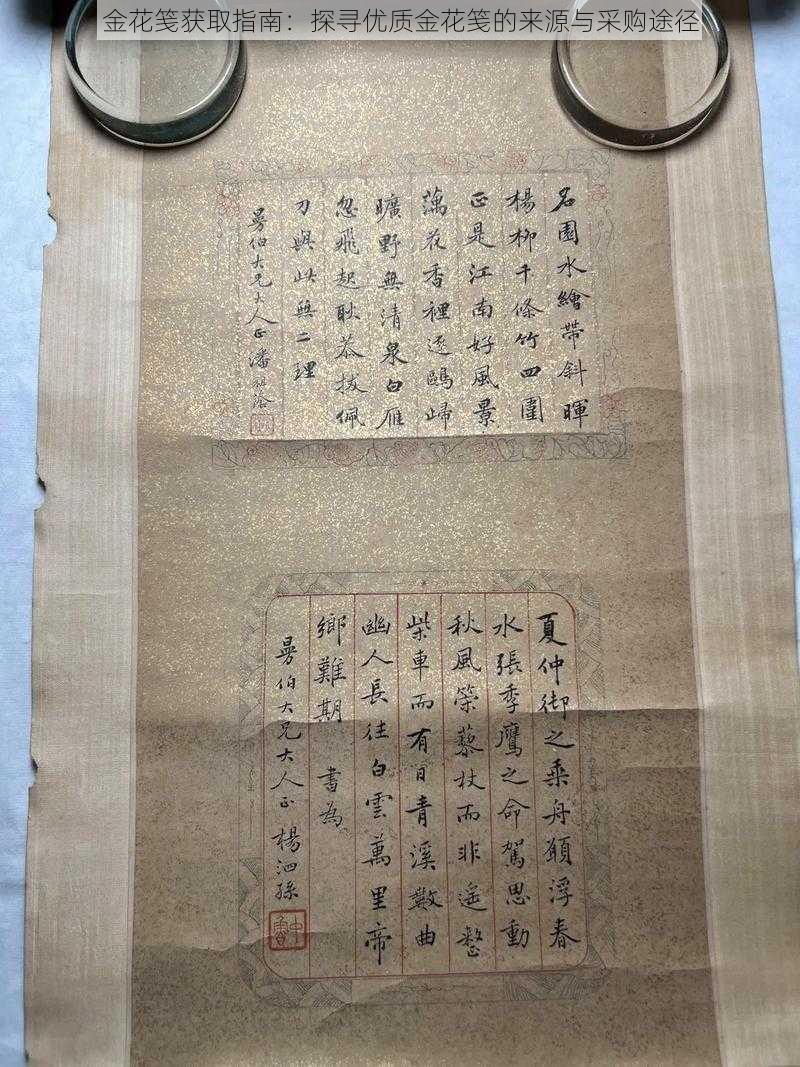 金花笺获取指南：探寻优质金花笺的来源与采购途径
名園水繪帶斜暉
楊柳千條竹四圍
正是江南好風景
藕花香裡逐鷗歸
曠野無清泉白雁
忽飛起耿恭拔佩
刀與此無二理
曼伯大兄大人正 潘
夏仲御之乘舟願浮春
水張季鷹之命駕思動
秋風策藜杖而非遙整
柴車而有日青溪數曲
幽人長往白雲萬里帝
鄉難期 書為
曼伯大兄大人正 楊泗孫